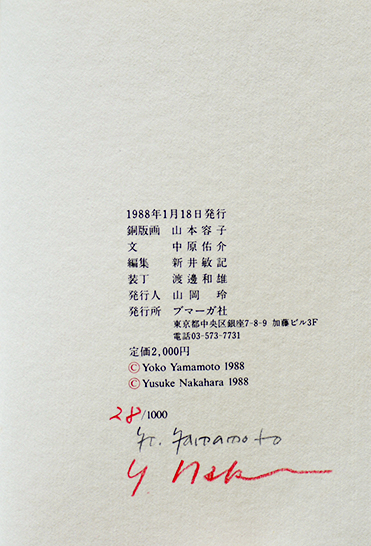 1988年1月18日発行
銅版画 山本容子
文 中原佑介
編集 新井敏記
装丁 渡邊和雄
発行人 山岡 玲
発行所 ブマーガ社
東京都中央区銀座7-8-9 加藤ビル3F
電話03-573-7731
定価2,000円
©Yoko Yamamoto 1988
©Yusuke Nakahara 1988
28/1000
Y. Yamamoto